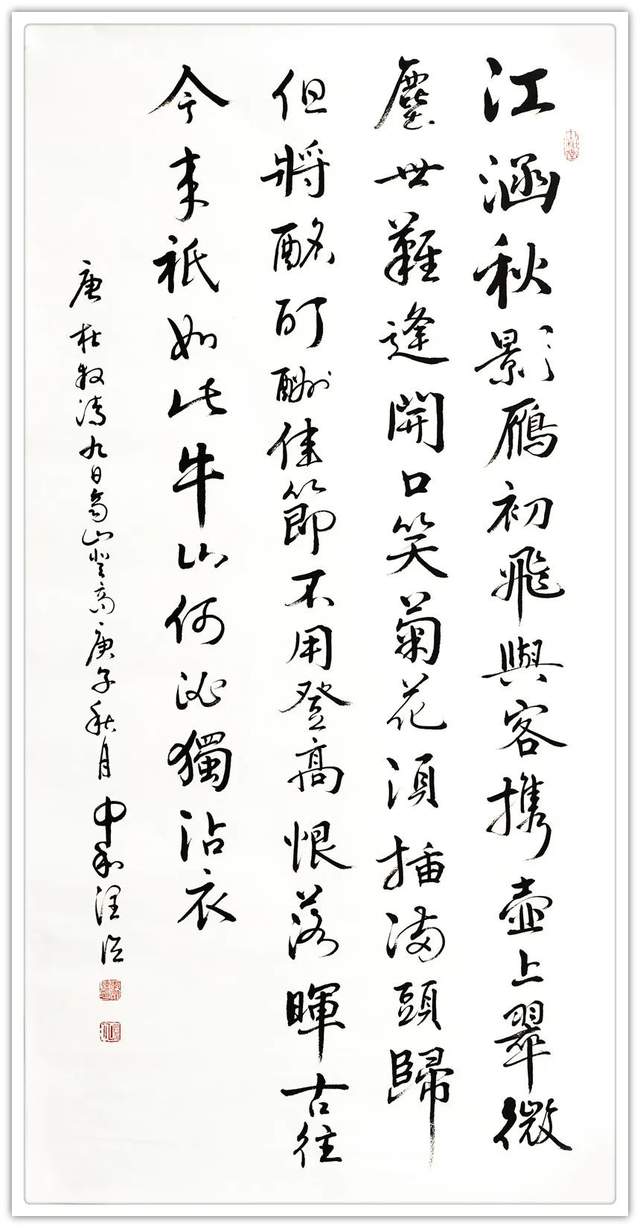 江涵秋影鴈初飛與客携壺上翠微
塵世難逢開口笑菊花須插滿頭歸
但將酩酊酬佳節不用登高恨落暉古往
今來祇如此牛山何必獨沾衣
唐杜牧詩九日齊山登高庚子秋月